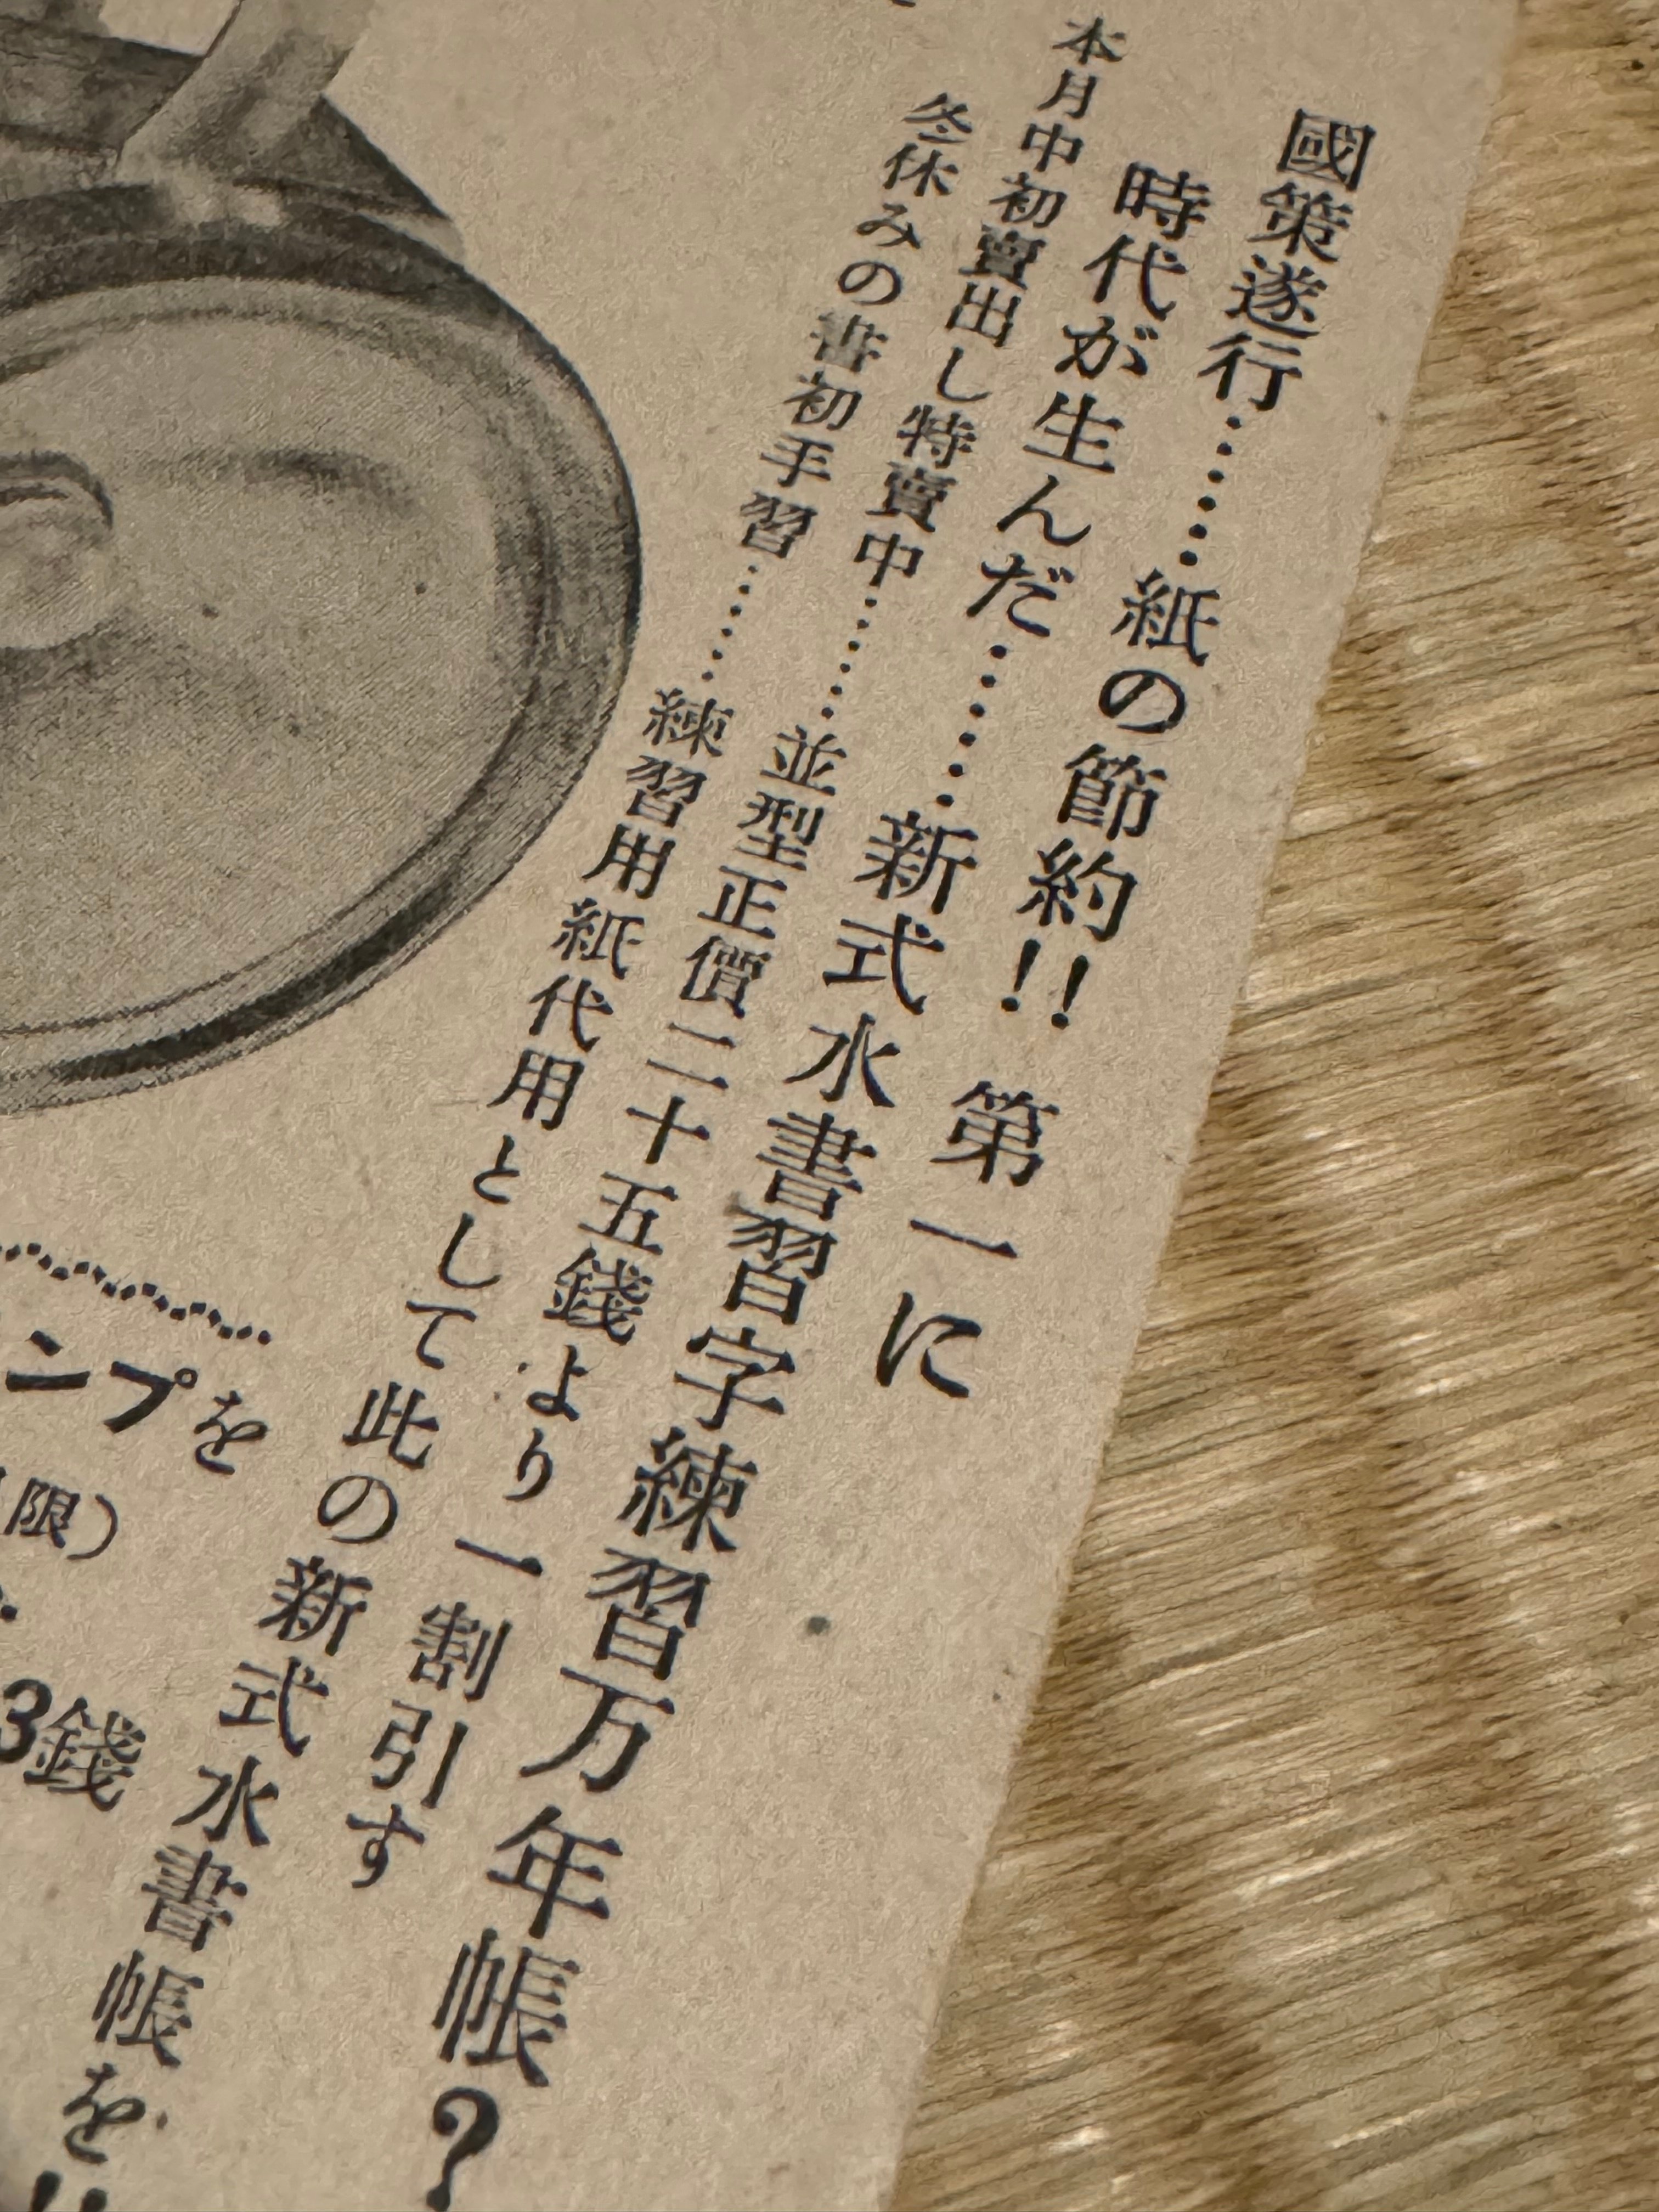 國策遂行……紙の節約!! 第一に
時代が生んだ……新式水書習字練習万年帳?
本月中初賣出し特賣中……並型正價二十五錢より一割引す
冬休みの書初手習……練習用紙代用として此の新式水書帳を!!
ンプを
限)
3錢